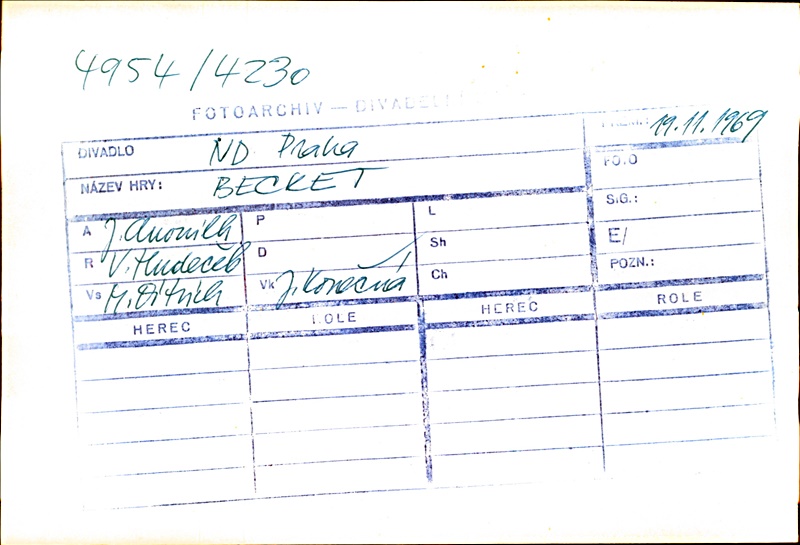 4954/4230
FOTOARCHIV — DIVADELN
19.11.1969
DIVADLO ND Praha
FOTO
NÁZEV HRY: BECKET
SIG.:
A J. Anouilh P L
E/
R V. Hudeček D Sh
POZN.:
Vs M. Ditrich Vk J. Konečná Ch
HEREC ROLE HEREC ROLE